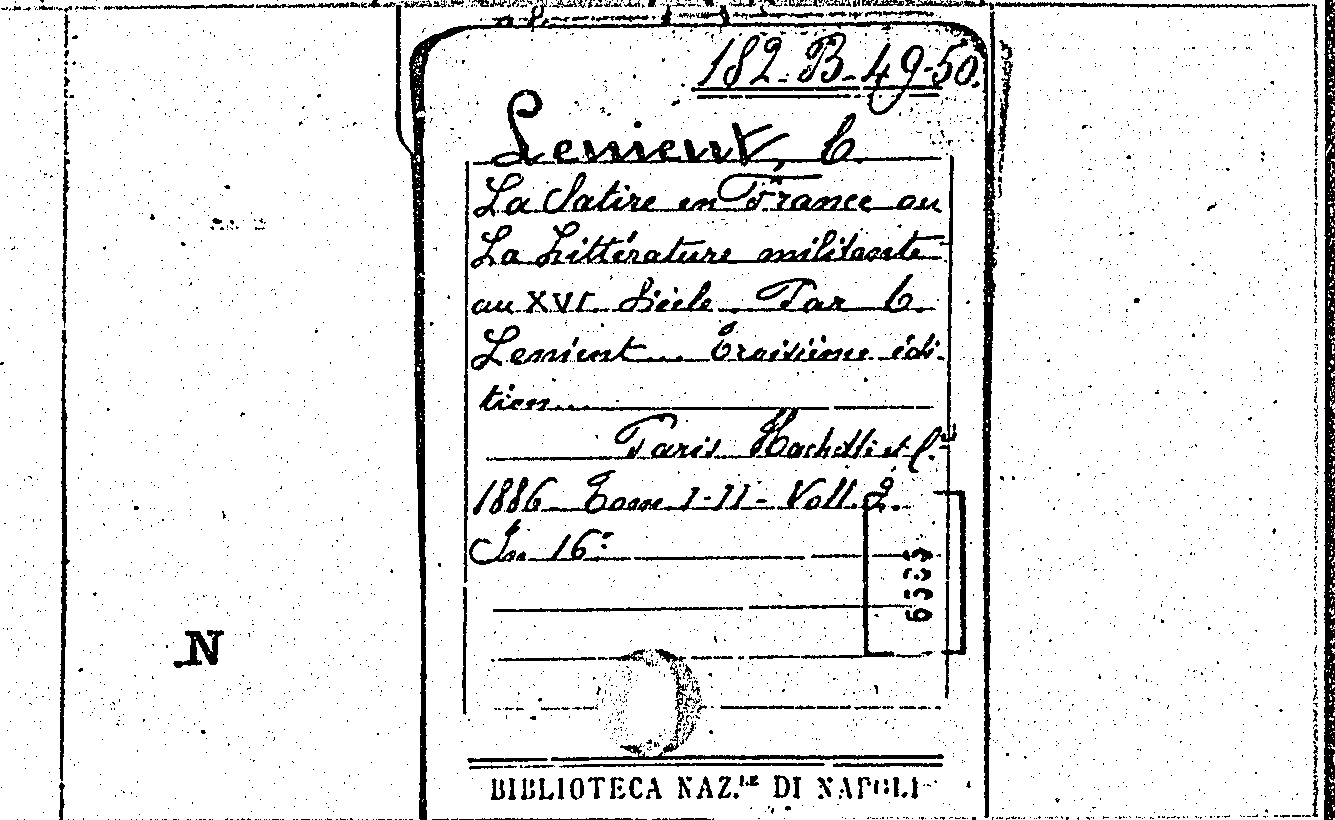 182-B-49-50.
Lenient, C.
La Satire en France ou
La Littérature militante
au XVIe Siècle. Par C.
Lenient... Troisième édi-
tion...
Paris Hachette et C.ie
1886 Tom I-II- Voll. 2.
In 16.°
N
BIBLIOTECA NAZ.LE DI NAPOLI